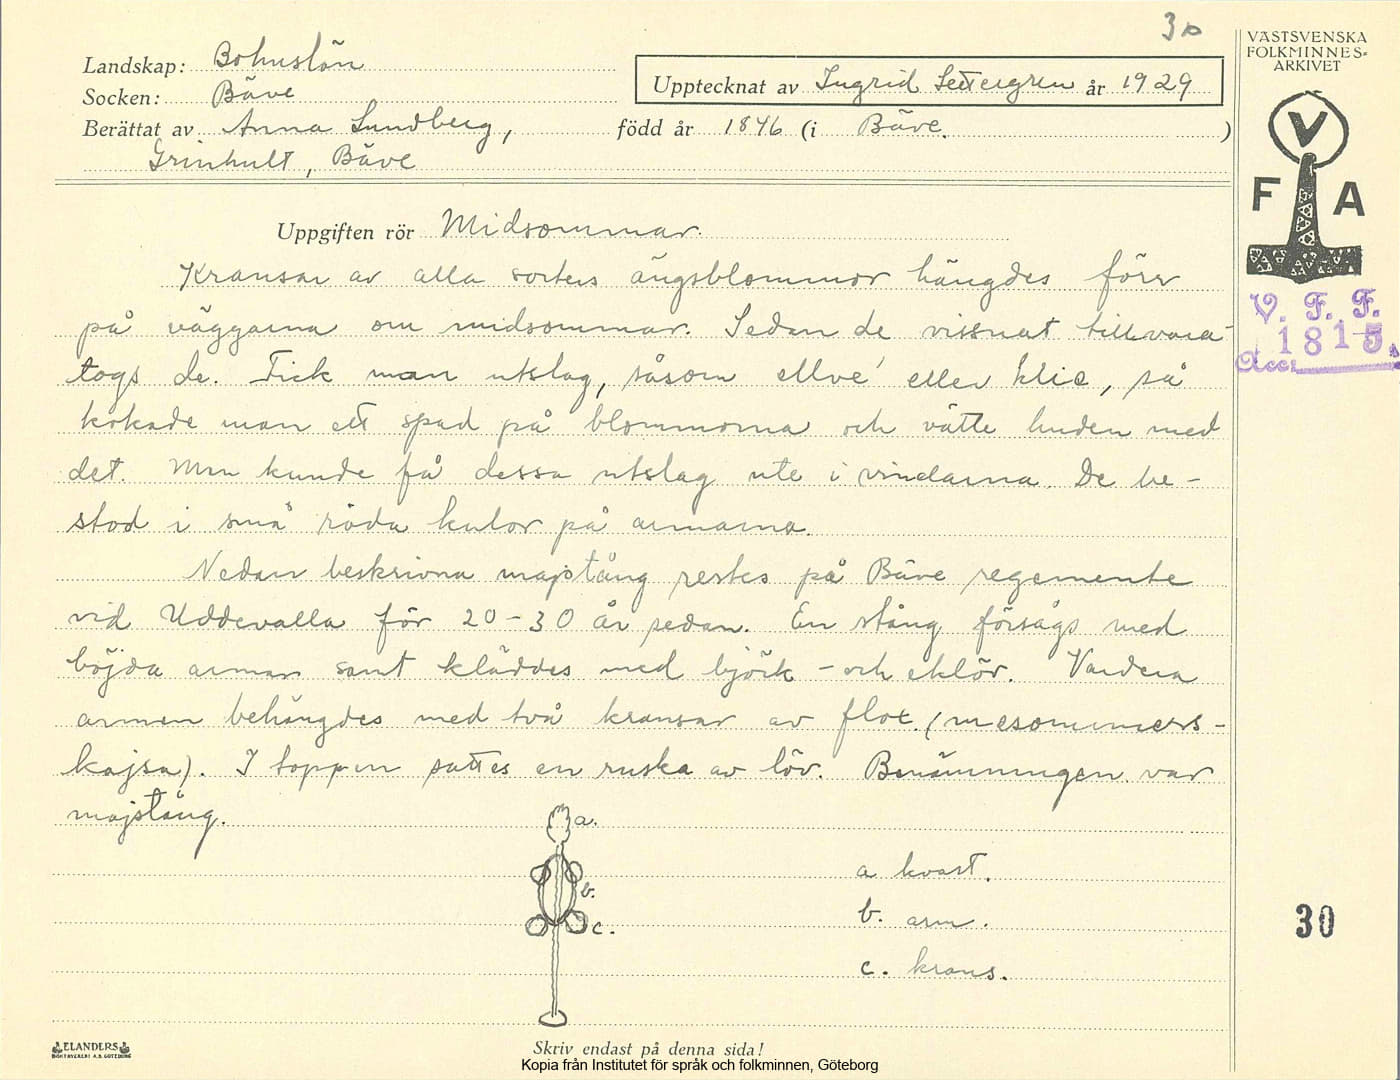 30
Landskap: Bohuslän
Socken: Bäve
Upptecknat av Ingrid Settergren år 1929
Berättat av Anna Lundberg, född år 1846 (i Bäve. )
Grinhult, Bäve
VÄSTSVENSKA
FOLKMINNES-
ARKIVET
V
F A
V. F. F.
1815
Acc.
Uppgiften rör Midsommar.
Kransar av alla sorters ängsblommor hängdes förr
på väggarna om midsommar. Sedan de vissnat tillvara-
togs de. Fick man utslag, såsom ellve' eller klie, så
kokade man ett spad på blommorna och vätte huden med
det. Man kunde få dessa utslag ute i vindarna. De be-
stod i små röda kulor på armarna.
Nedan beskrivna majstång restes på Bäve regemente
vid Uddevalla för 20-30 år sedan. En stång försågs med
böjda armar samt kläddes med björk- och eklöv. Vardera
armen behängdes med två kransar av flox (mesommers-
kajsa). I toppen sattes en ruska av löv. Benämningen var
majstång.
a.
b.
c.
a kvast.
b. arm.
c. krans.
30
ELANDERS
BOKTRYCKERI A.B. GÖTEBORG
Skriv endast på denna sida!
Kopia från Institutet för språk och folkminnen, Göteborg